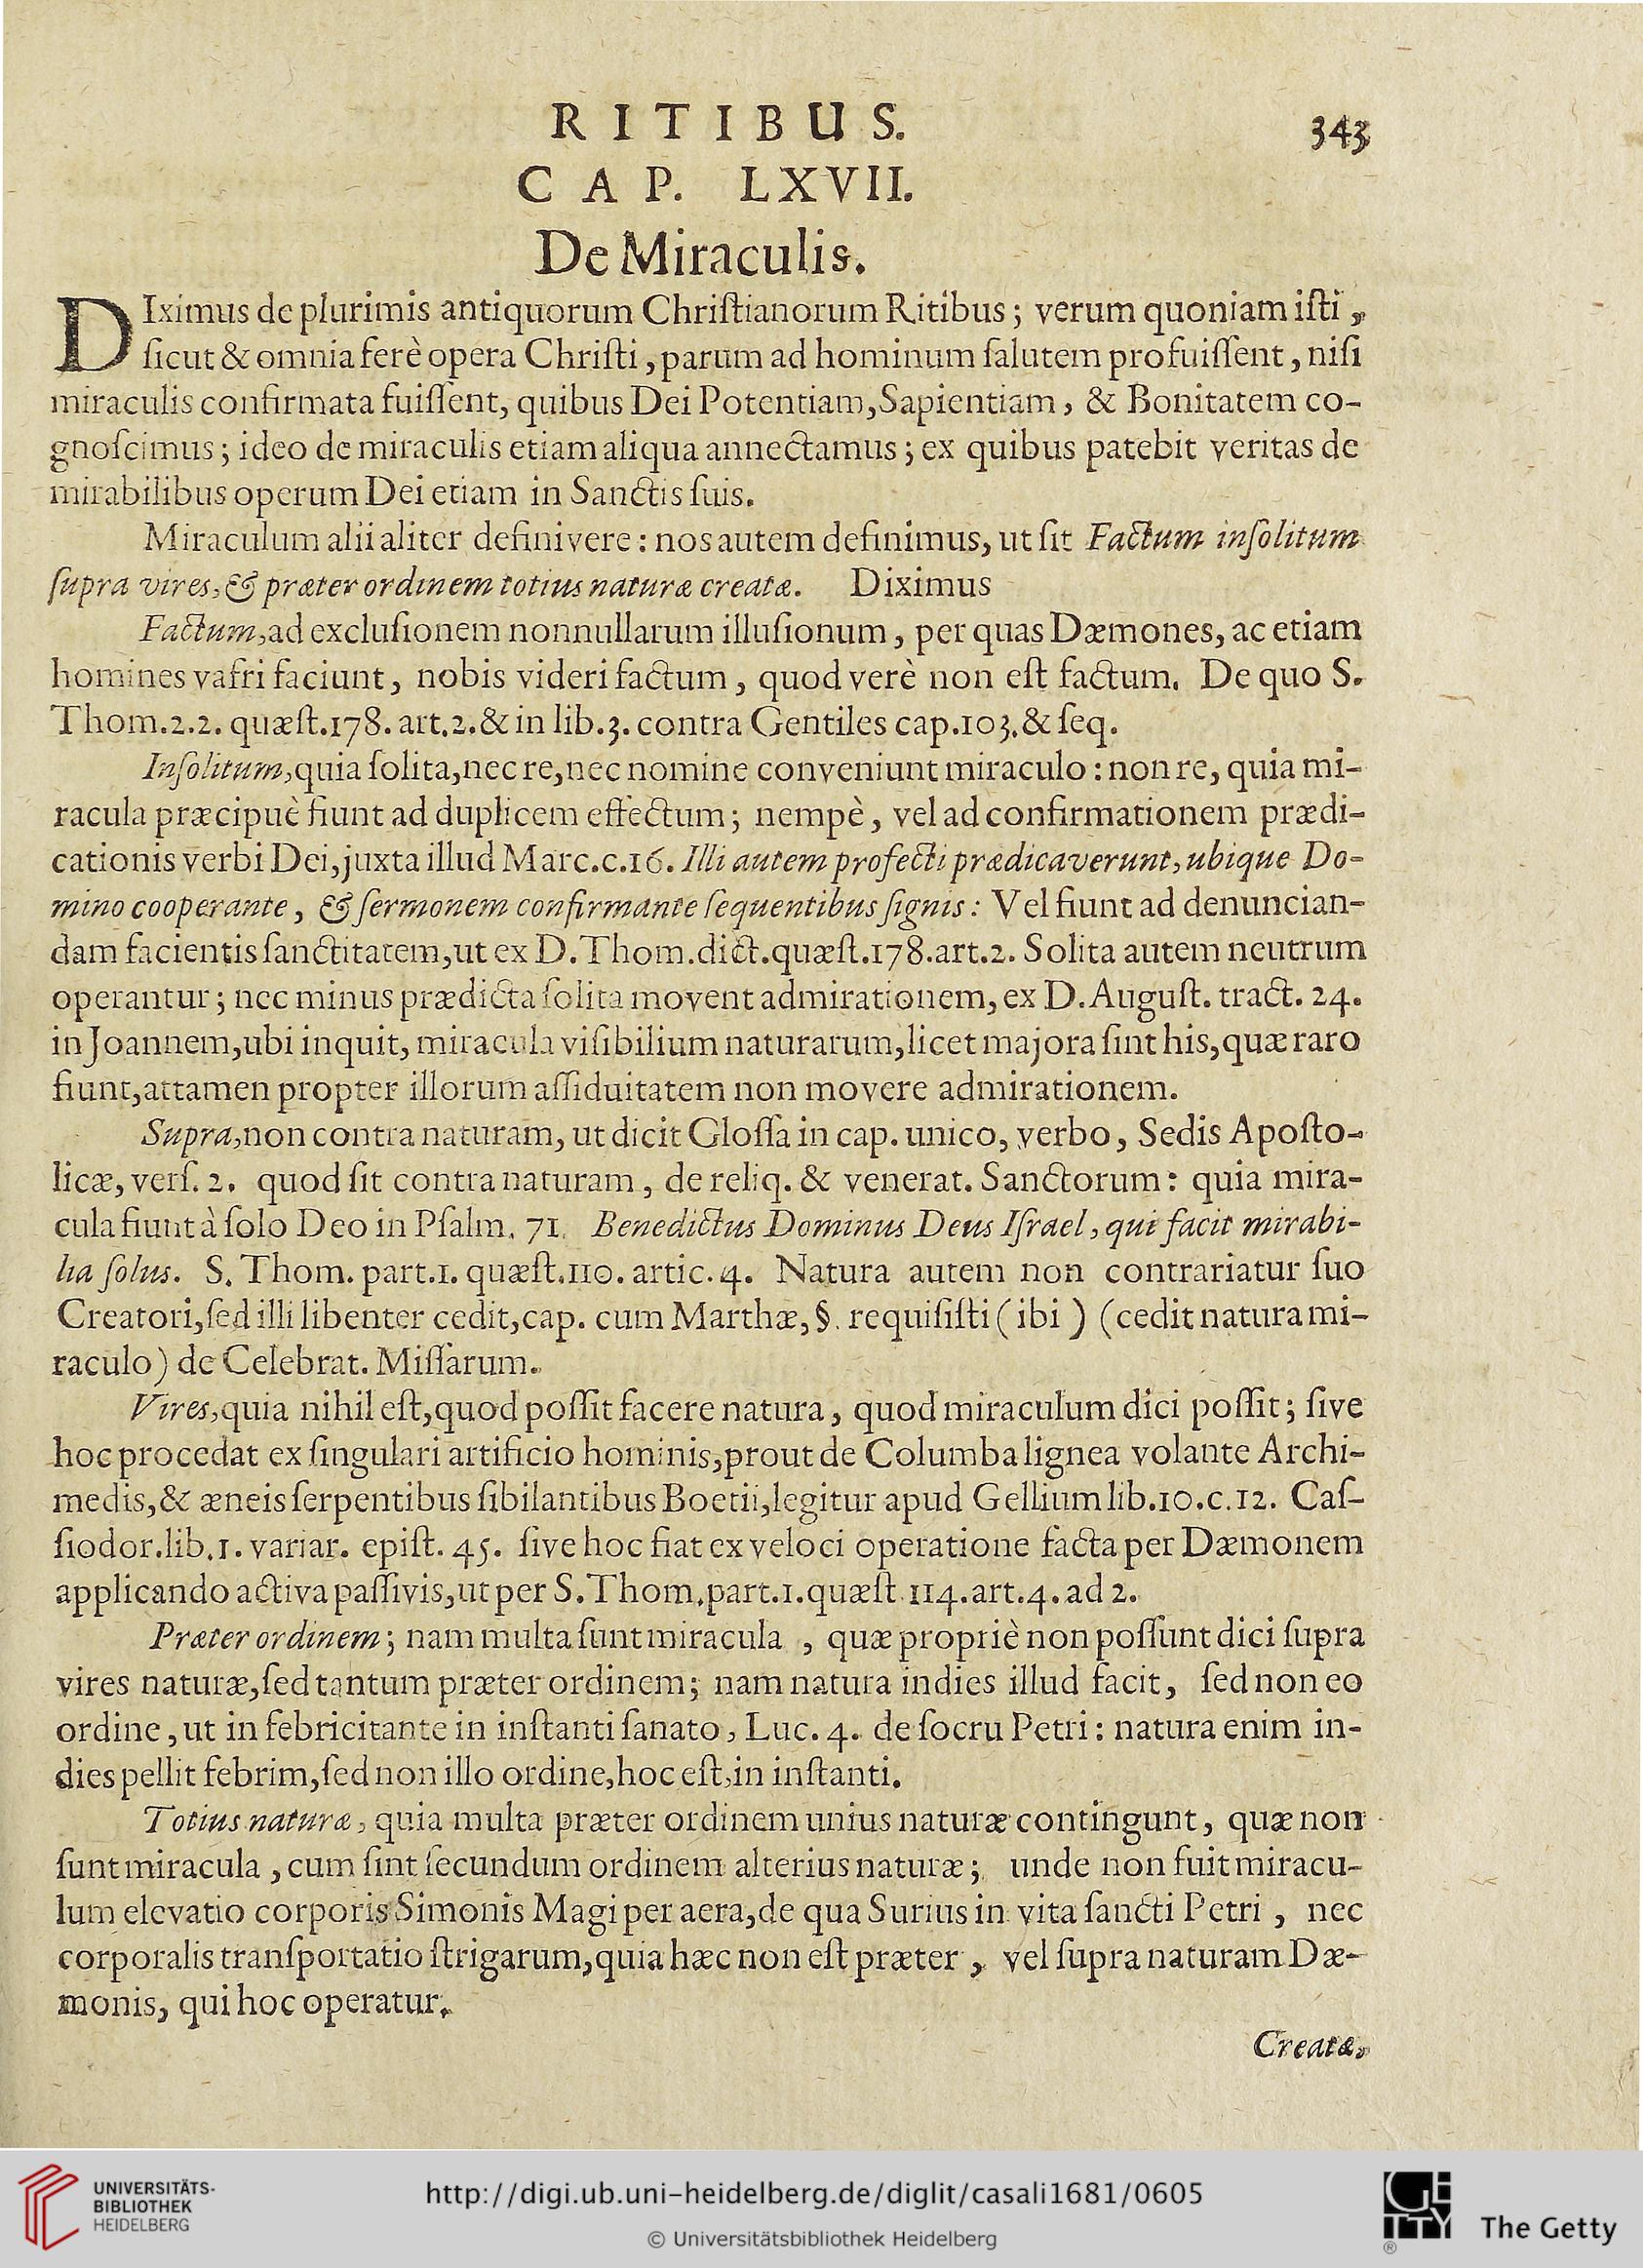 RITIBUS. 343
CAP. LXVII.
De Miraculis.
DIximus de plurimis antiquorum Chriſtianorum Ritibus; verum quoniam iſti,
ſicut & omnia ferè opera Chriſti, parum ad hominum ſalutem profuiſſent, niſi
miraculis confirmata fuiſſent, quibus Dei Potentiam, Sapientiam, & Bonitatem co-
gnoſcimus; ideo de miraculis etiam aliqua annectamus; ex quibus patebit veritas de
mirabilibus operum Dei etiam in Sanctis ſuis.
Miraculum alii aliter definivere: nos autem definimus, ut ſit Factum inſolitum
ſupra vires, & præter ordinem totius naturæ creatæ. Diximus
Factum, ad excluſionem nonnullarum illuſionum, per quas Dæmones, ac etiam
homines vafri faciunt, nobis videri factum, quod verè non eſt factum. De quo S.
Thom.2.2. quæſt.178. art.2.& in lib.3. contra Gentiles cap.103.& ſeq.
Inſolitum, quia ſolita, nec re, nec nomine conveniunt miraculo: non re, quia mi-
racula præcipuè fiunt ad duplicem effectum; nempè, vel ad confirmationem prædi-
cationis verbi Dei, juxta illud Marc.c.16. Illi autem profecti prædicaverunt, ubique Do-
mino cooperante, & ſermonem confirmante ſequentibus ſignis: Vel fiunt ad denuncian-
dam facientis ſanctitatem, ut ex D. Thom.dict.quæſt.178.art.2. Solita autem neutrum
operantur; nec minus prædicta ſolita movent admirationem, ex D. Auguſt. tract. 24.
in Joannem, ubi inquit, miracula viſibilium naturarum, licet majora ſint his, quæ raro
fiunt, attamen propter illorum aſſiduitatem non movere admirationem.
Supra, non contra naturam, ut dicit Gloſſa in cap. unico, verbo, Sedis Apoſto-
licæ, verſ. 2. quod ſit contra naturam, de reliq. & venerat. Sanctorum: quia mira-
cula fiunt à ſolo Deo in Pſalm. 71. Benedictus Dominus Deus Iſrael, qui facit mirabi-
lia ſolus. S. Thom. part.1. quæſt.110. artic.4. Natura autem non contrariatur ſuo
Creatori, ſed illi libenter cedit, cap. cum Marthæ, §. requiſiſti (ibi) (cedit natura mi-
raculo) de Celebrat. Miſſarum.
Vires, quia nihil eſt, quod poſſit facere natura, quod miraculum dici poſſit; ſive
hoc procedat ex ſingulari artificio hominis, prout de Columba lignea volante Archi-
medis, & æneis ſerpentibus ſibilantibus Boetii, legitur apud Gellium lib.10.c.12. Caſ-
ſiodor.lib.1. variar. epiſt. 45. ſive hoc fiat ex veloci operatione facta per Dæmonem
applicando activa paſſivis, ut per S. Thom. part.1.quæſt.114.art.4.ad 2.
Præter ordinem; nam multa ſunt miracula, quæ propriè non poſſunt dici ſupra
vires naturæ, ſed tantum præter ordinem; nam natura indies illud facit, ſed non eo
ordine, ut in febricitante in inſtanti ſanato, Luc. 4. de ſocru Petri: natura enim in-
dies pellit febrim, ſed non illo ordine, hoc eſt, in inſtanti.
Totius naturæ, quia multa præter ordinem unius naturæ contingunt, quæ non
ſunt miracula, cum ſint ſecundum ordinem alterius naturæ; unde non fuit miracu-
lum elevatio corporis Simonis Magi per aera, de qua Surius in vita ſancti Petri, nec
corporalis tranſportatio ſtrigarum, quia hæc non eſt præter, vel ſupra naturam Dæ-
monis, qui hoc operatur.
Creatæ,
UNIVERSITÄTS-
BIBLIOTHEK
HEIDELBERG
http://digi.ub.uni-heidelberg.de/diglit/casali1681/0605
© Universitätsbibliothek Heidelberg
GETTY
®
The Getty